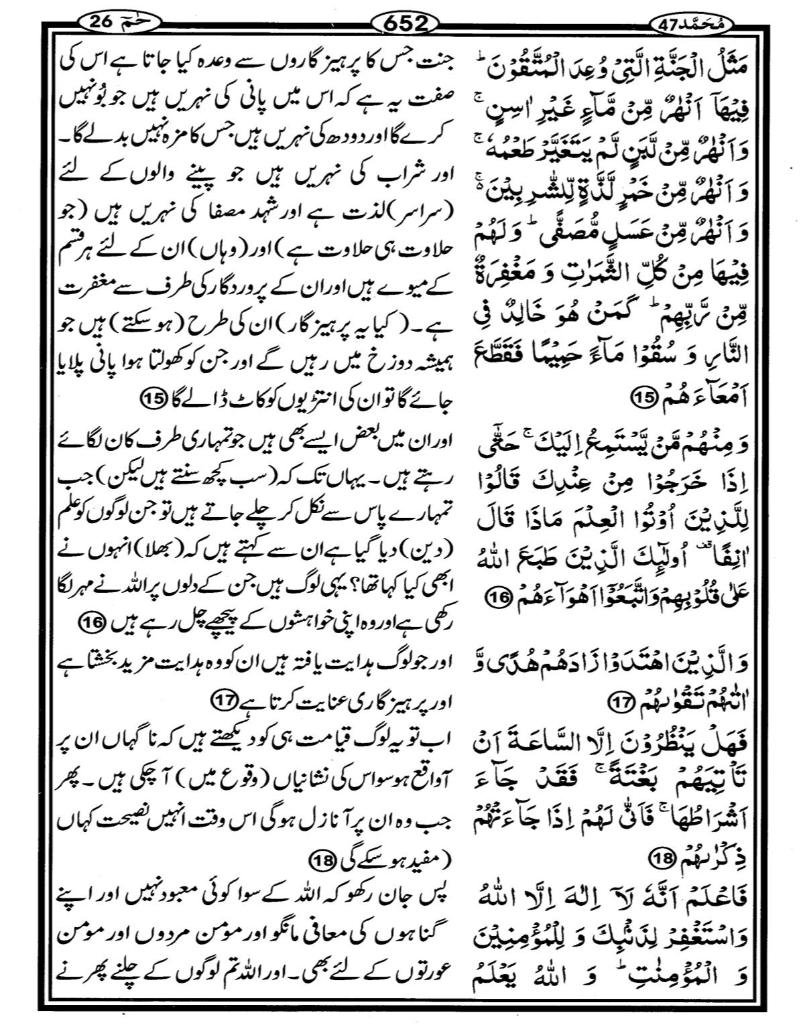 مُحَمَّد47
652
حٰمٓ 26
مَثَلُ الۡجَنَّةِ الَّتِىۡ وُعِدَ الۡمُتَّقُوۡنَ‌ ؕ
فِيۡهَاۤ اَنۡهٰرٌ مِّنۡ مَّآءٍ غَيۡرِ اٰسِنٍ‌ ۚ
وَاَنۡهٰرٌ مِّنۡ لَّبَنٍ لَّمۡ يَتَغَيَّرۡ طَعۡمُهٗ ‌ۚ
وَاَنۡهٰرٌ مِّنۡ خَمۡرٍ لَّذَّةٍ لِّلشّٰرِبِيۡنَ ۚ
وَاَنۡهٰرٌ مِّنۡ عَسَلٍ مُّصَفًّى‌ ؕ وَلَهُمۡ
فِيۡهَا مِنۡ كُلِّ الثَّمَرٰتِ وَ مَغۡفِرَةٌ
مِّنۡ رَّبِّهِمۡ‌ؕ كَمَنۡ هُوَ خَالِدٌ فِى
النَّارِ وَ سُقُوۡا مَآءً حَمِيۡمًا فَقَطَّعَ
اَمۡعَآءَهُمۡ 15
وَمِنۡهُمۡ مَّنۡ يَّسۡتَمِعُ اِلَيۡكَ‌ۚ حَتّٰٓى
اِذَا خَرَجُوۡا مِنۡ عِنۡدِكَ قَالُوۡا
لِلَّذِيۡنَ اُوۡتُوا الۡعِلۡمَ مَاذَا قَالَ
اٰنِفًا‌ اُولٰٓٮِٕكَ الَّذِيۡنَ طَبَعَ اللّٰهُ
عَلٰى قُلُوۡبِهِمۡ وَاتَّبَعُوۡۤا اَهۡوَآءَهُمۡ 16
وَالَّذِيۡنَ اهۡتَدَوۡا زَادَهُمۡ هُدًى وَّ
اٰتٰٮهُمۡ تَقۡوٰٮهُمۡ 17
فَهَلۡ يَنۡظُرُوۡنَ اِلَّا السَّاعَةَ اَنۡ
تَاۡتِيَهُمۡ بَغۡتَةً ‌ۚ فَقَدۡ جَآءَ
اَشۡرَاطُهَا‌ ۚ فَاَنّٰى لَهُمۡ اِذَا جَآءَتۡهُمۡ
ذِكۡرٰٮهُمۡ 18
فَاعۡلَمۡ اَنَّهٗ لَاۤ اِلٰهَ اِلَّا اللّٰهُ
وَاسۡتَغۡفِرۡ لِذَنۡۢبِكَ وَلِلۡمُؤۡمِنِيۡنَ
وَ الۡمُؤۡمِنٰتِ‌ ؕ وَ اللّٰهُ يَعۡلَمُ
جنت جس کا پرہیزگاروں سے وعدہ کیا جاتا ہے اس کی
صفت یہ ہے کہ اس میں پانی کی نہریں ہیں جو بُو نہیں
کرے گا اور دودھ کی نہریں ہیں جس کا مزہ نہیں بدلے گا۔
اور شراب کی نہریں ہیں جو پینے والوں کے لئے
(سراسر) لذت ہے اور شہد مصفا کی نہریں ہیں (جو
حلاوت ہی حلاوت ہے) اور (وہاں) ان کے لئے ہر قسم
کے میوے ہیں اور ان کے پروردگار کی طرف سے مغفرت
ہے۔ (کیا یہ پرہیزگار) ان کی طرح (ہوسکتے) ہیں جو
ہمیشہ دوزخ میں رہیں گے اور جن کو کھولتا ہوا پانی پلایا
جائے گا تو ان کی انتڑیوں کو کاٹ ڈالے گا 15
اور ان میں بعض ایسے بھی ہیں جو تمہاری طرف کان لگائے
رہتے ہیں۔ یہاں تک کہ (سب کچھ سنتے ہیں لیکن) جب
تمہارے پاس سے نکل کر چلے جاتے ہیں تو جن لوگوں کو علم
(دین) دیا گیا ہے ان سے کہتے ہیں کہ (بھلا) انہوں نے
ابھی کیا کہا تھا؟ یہی لوگ ہیں جن کے دلوں پر اللہ نے مہر لگا
رکھی ہے اور وہ اپنی خواہشوں کے پیچھے چل رہے ہیں 16
اور جو لوگ ہدایت یافتہ ہیں ان کو وہ ہدایت مزید بخشتا ہے
اور پرہیزگاری عنایت کرتا ہے 17
اب تو یہ لوگ قیامت ہی کو دیکھتے ہیں کہ ناگہاں ان پر
آواقع ہو سو اس کی نشانیاں (وقوع میں) آچکی ہیں۔ پھر
جب وہ ان پر آ نازل ہوگی اس وقت انہیں نصیحت کہاں
(مفید ہوسکے گی 18
پس جان رکھو کہ اللہ کے سوا کوئی معبود نہیں اور اپنے
گناہوں کی معافی مانگو اور مومن مردوں اور مومن
عورتوں کے لئے بھی۔ اور اللہ تم لوگوں کے چلنے پھرنے